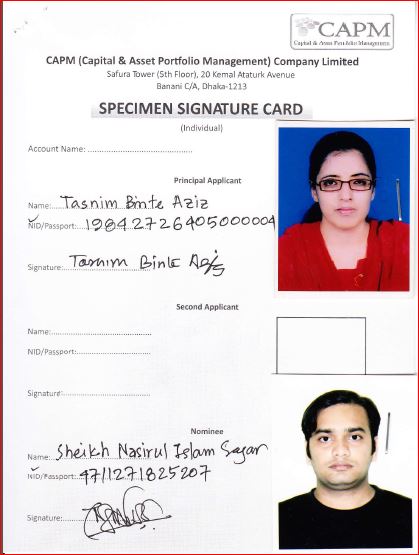 CAPM
Capital & Asset Portfolio Management
CAPM (Capital & Asset Portfolio Management) Company Limited
Safura Tower (5th Floor), 20 Kemal Ataturk Avenue
Banani C/A, Dhaka-1213
SPECIMEN SIGNATURE CARD
(Individual)
Account Name: ..........................................
Principal Applicant
Name: Tasnim Binte Aziz
NID/Passport: 19842726405000004
Signature: Tasnim Binte Aziz
Second Applicant
Name:........................................
NID/Passport:..............................
Signature:...................................
Nominee
Name: Sheikh Nasirul Islam Sagar
NID/Passport: 4711271825207
Signature: